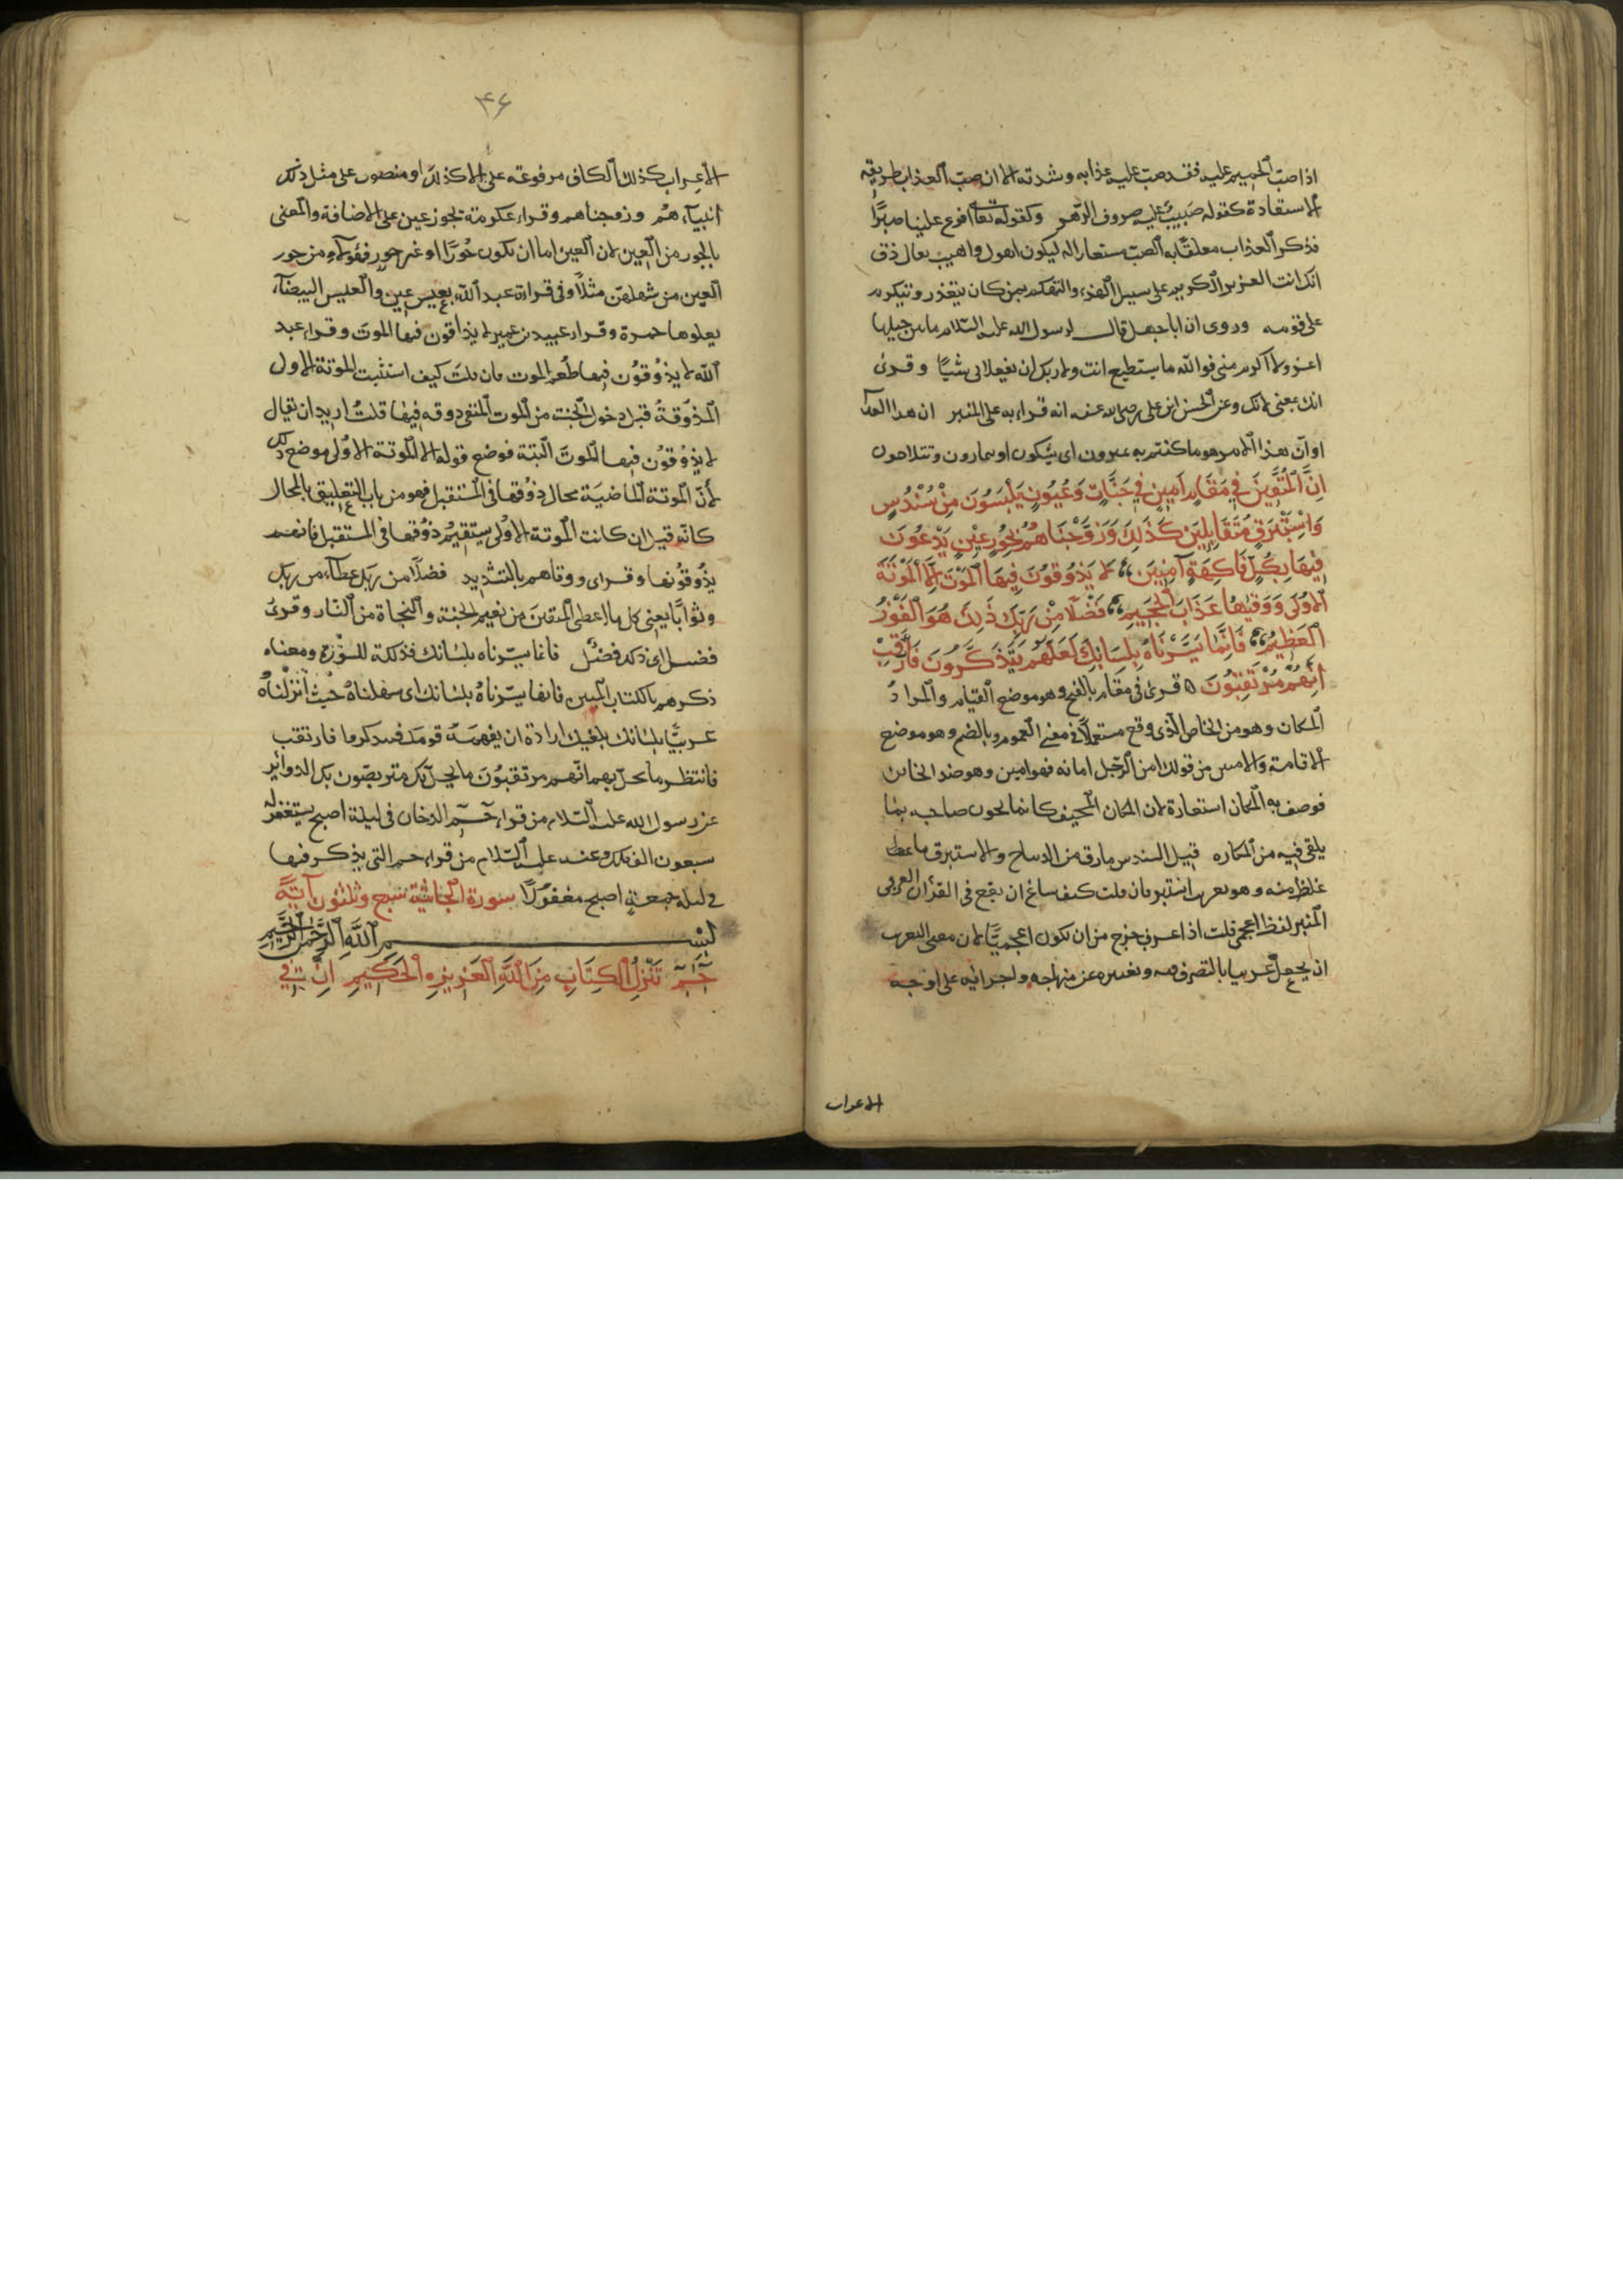 اذا صبّ الحميم عليه فقد صبّ عليه عذابه وشدته الا ان صبّ العذاب طريقه
الاستعارة كقوله صبيبٌ عليه صروف الدّهر وكقوله تعالى افرغ علينا صبرًا
فذكر العذاب معلقًا به الصبّ مستعارا له ليكون اهول واهيب يقال ذق
انك انت العزيز الكريم على سبيل الهزء والتهكم بمن كان يتعزز ويتكرم
على قومه وروى ان اباجهل قال لرسول الله عليه السّلام ما بين جبليها
اعز ولا اكرم منى فوالله ما يستطيع انت ولا ربك ان تفعلا بى شيئًا وقرئ
انك بمعنى لانك وعن الحسن ابن على رضى الله عنه انه قراء به على المنبر ان هذا العذاب
او انّ هذا الامر هو ما كنتم به تمترون اى تشكون او تمارون وتتلاحون
اِنَّ المُتَّقِينَ فِي مَقَامٍ اَمِينٍ فِي جَنَّاتٍ وَعُيُونٍ يَلْبَسُونَ مِنْ سُنْدُسٍ
وَاِسْتَبْرَقٍ مُتَقَابِلِينَ كَذَلِكَ وَزَوَّجْنَاهُمْ بِحُورٍ عِيْنٍ يَدْعُونَ
فِيْهَا بِكُلِّ فَاكِهَةٍ آمِنِيْنَ لَا يَذُوقُونَ فِيهَا المَوْتَ اِلَّا المَوْتَةَ
الْاُوْلَى وَوَقٰيهُمْ عَذَابَ الجَحِيمِ فَضْلًا مِنْ رَبِّكَ ذَلِكَ هُوَ الفَوْزُ
العَظِيمُ فَاِنَّمَا يَسَّرْنَاهُ بِلِسَانِكَ لَعَلَّهُمْ يَتَذَكَّرُونَ فَارْتَقِبْ
اِنَّهُمْ مُرْتَقِبُونَ قرئ فى مقام بالفتح وهو موضع القيام والمرادُ
المكان وهو من الخاص الّذى وقع مستعملًا فى معنى العموم وبالضم وهو موضع
الاقامة والامين من قولك امن الرّجل امانه فهو امين وهو ضد الخاين
فوصف به المكان استعارة لان المكان المخيف كانما يخون صاحبه بما
يلقى فيه من المكاره قيل السندس ما رق من الديباج والاستبرق ما غلظ
غلظ منه وهو تعريب استبر فان قلت كيف ساغ ان يقع فى القرآن العربى
المبين لفظ اعجمى قلت اذا عرب خرج من ان يكون اعجميًّا لان معنى التعريب
ان يجعل عربيا بالتصرف فيه وتغييره عن منهاجه واجرائه على اوجه
الاعراب
٤٦
الاعراب كذلك الكاف مرفوعة على الا كذلك او منصوب على مثل ذلك
اثبناهُم وزوجناهم وقراء عكرمة بحور عين على الاضافة والمعنى
بالحور من العِين لان العين اما ان تكون حُورًا او غير حورٍ فهؤلاء من حور
العِين من شهلهنّ مثلًا وفى قراءة عبد الله بعيسٍ عينٍ والعيس البيضاء
يعلوها حمرة وقراء عبيد بن عمير لا يذاقون فيها الموت وقراء عبد
الله لا يذُوقُون فيها طعم الموت فان قلت كيف استثنيت الموتة الاولى
المذُوقةُ قبل دخول الجنة من الموت المنفى ذوقه فيها قلتُ اريد ان يقال
لا يذُوقُون فيها الموتَ البتة فوضع قوله الا الموتة الاُولى موضع ذلك
لأنّ الموتة الماضيَة محال ذوُقها فى المستقبل فهو من باب التعليق بالمحال
كانّه قيل ان كانت الموتة الاُولى يستقيم ذوُقها فى المستقبل فانهم
يذُوقوُنها وقرئ ووقاهم بالتشديد فضلًا من ربك عطاء من ربك
وثوابًا يعنى كل ما اعطى المتقين من نعيم الجنة والنجاة من النّار وقرئ
فضل اى ذلك فضلٌ فانما يسّرناه بلسانك فذلكة للسُّوْرَة ومعناه
ذكرهم بالكتاب المبين فانما يسّرناهُ بلسانك اى سهلناهُ حيْث اَنْزلناهُ
عربيًّا بلسانك بلغتك ارادة ان يفهمَهُ قومك فيتذكروا فارتقب
فانتظر ما يحلّ بهم انّهم مرتقبُونَ ما يحلّ بك متربصّون بك الدوائر
عن رسول الله عليه السّلام من قراء حٓمٓ الدخان فى ليلة اصبح يستغفر له
سبعون الف ملك وعنه عليه السّلام من قراء حم التى يذكر فيها
فى ليلة جمعةٍ اصبح مغفورًا سورة الجاثيةُ سَبع وثلثون آيَة
بِسْمِ اللهِ الرَّحْمٰنِ الرَّحِيْمِ
حٓمٓ تَنْزِيلُ الكِتَابِ مِنَ اللهِ العَزِيزِ الحَكِيمِ اِنَّ فِي